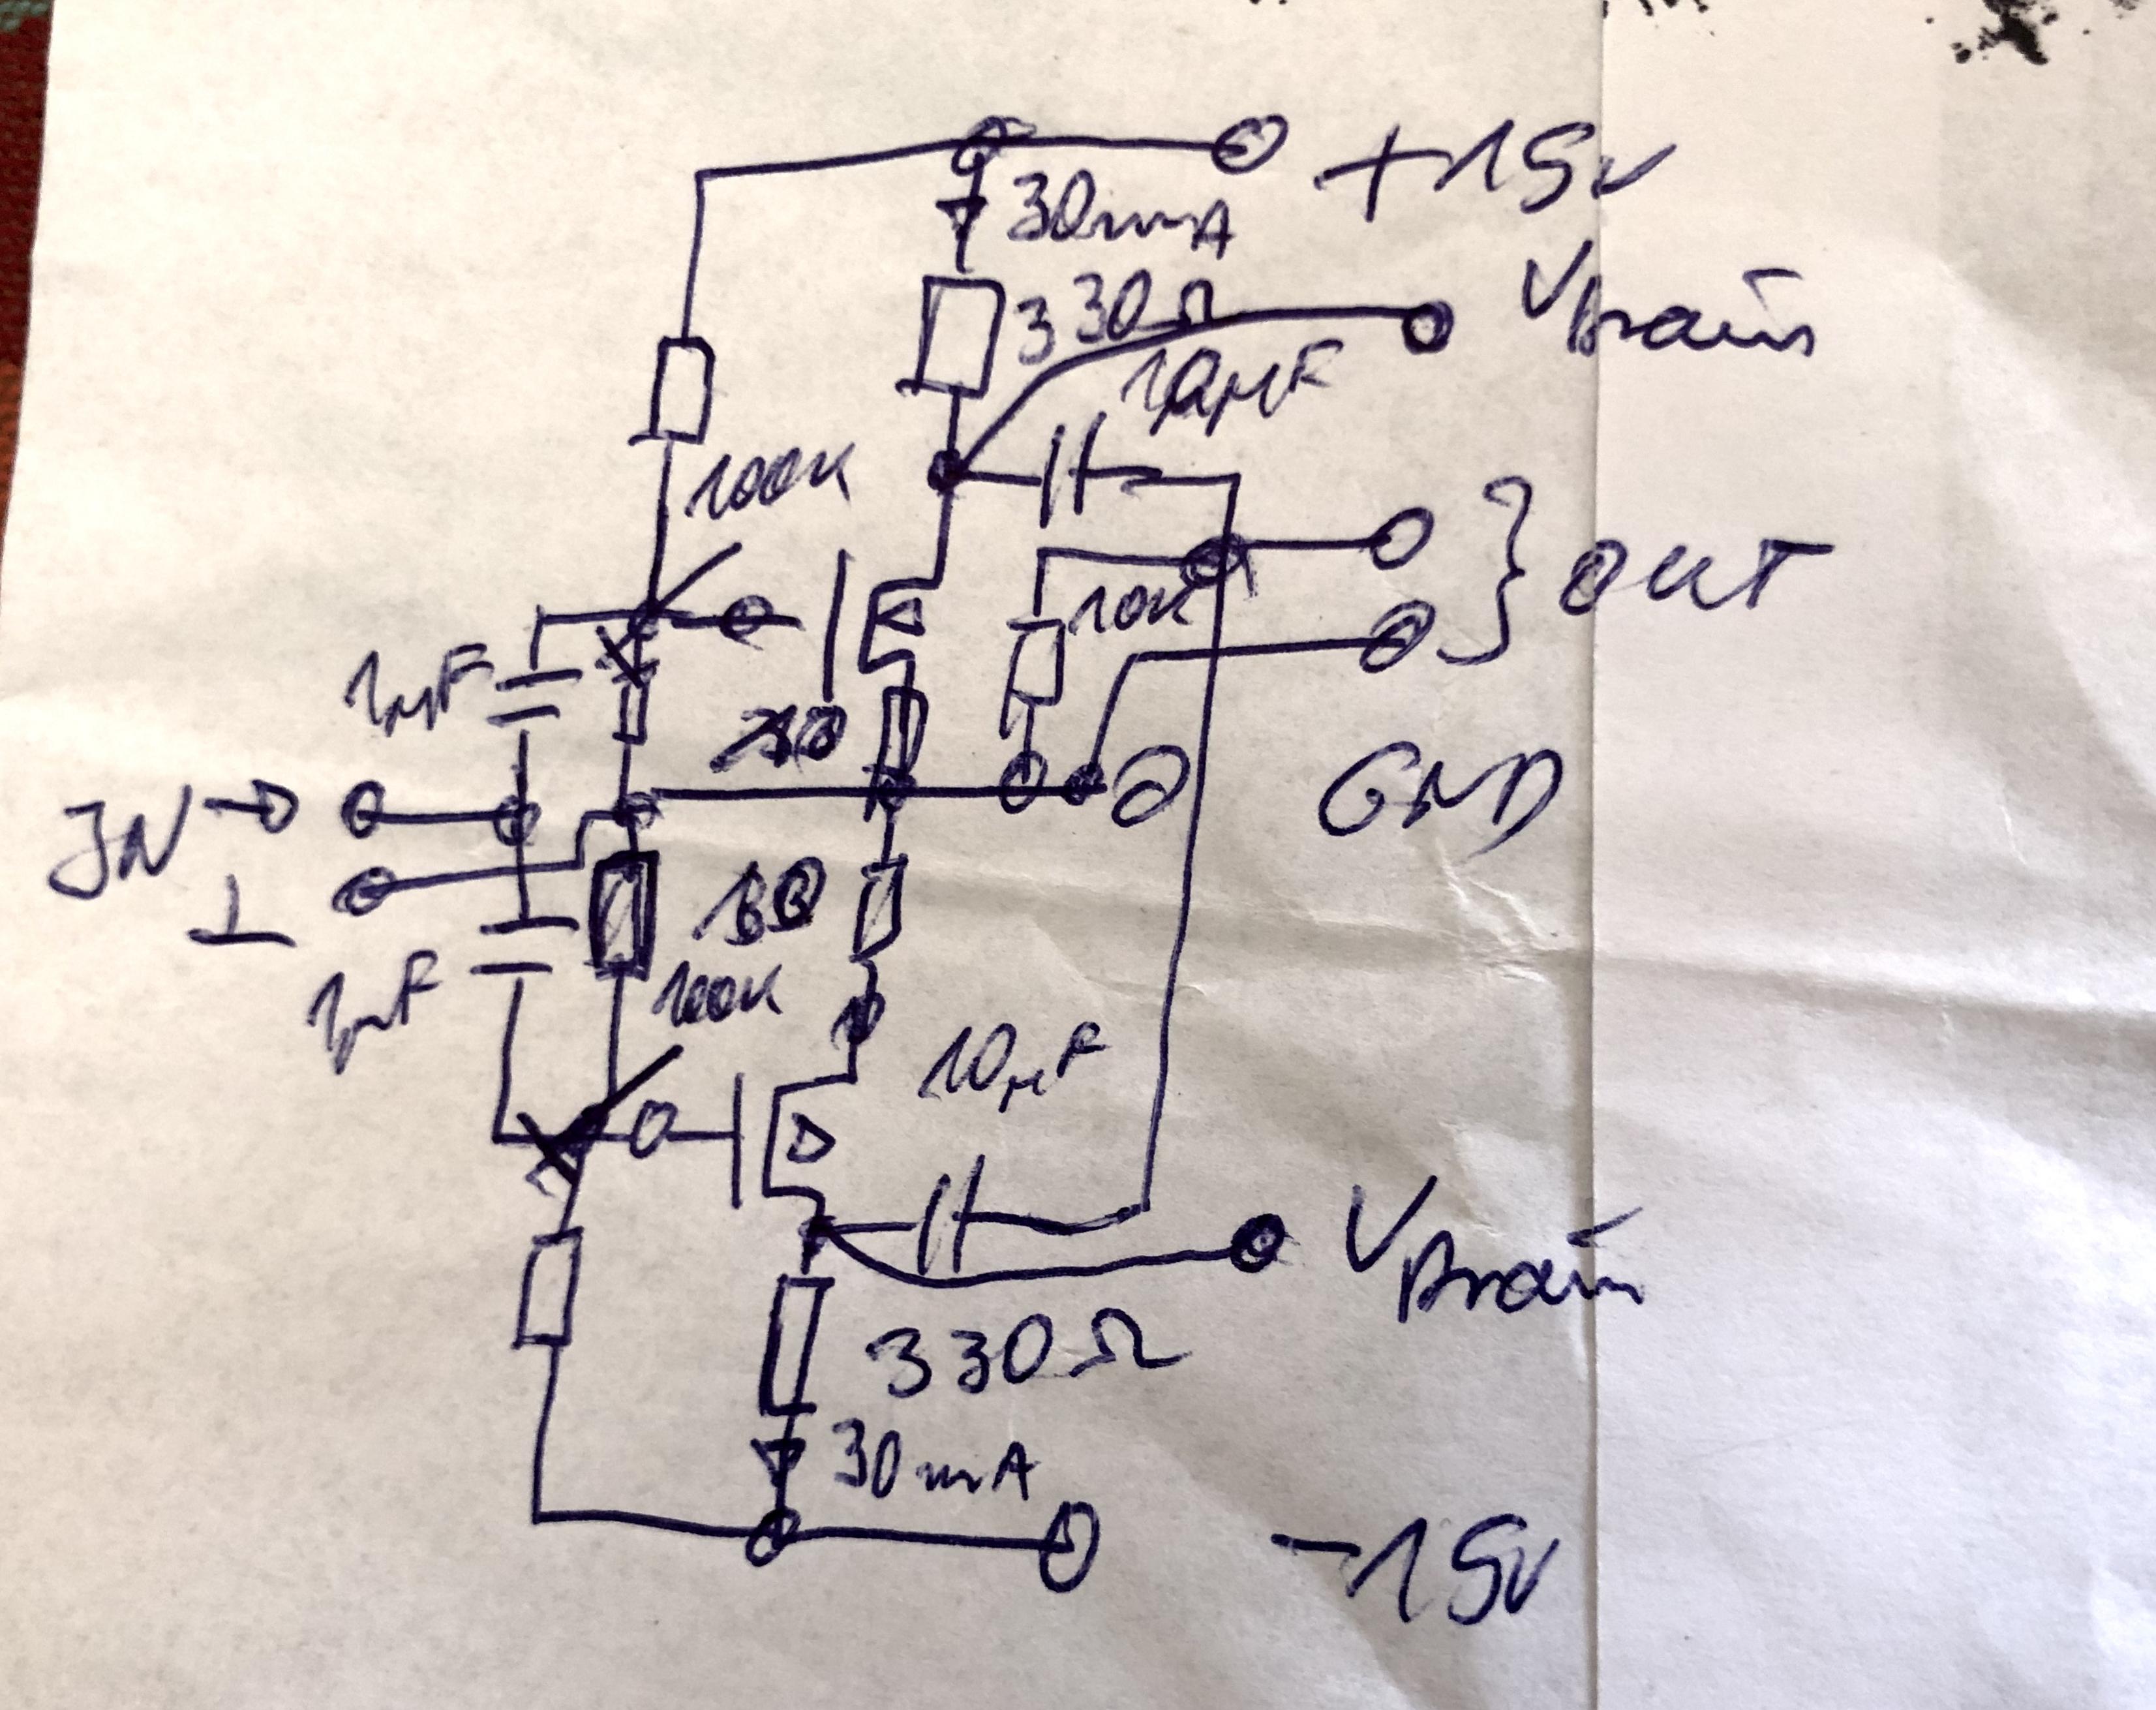 +15V
30mA
330Ω
VDrain
10µF
100K
OUT
10K
1µF
IN
GND
100K
1µF
10µF
VDrain
330Ω
30mA
-15V